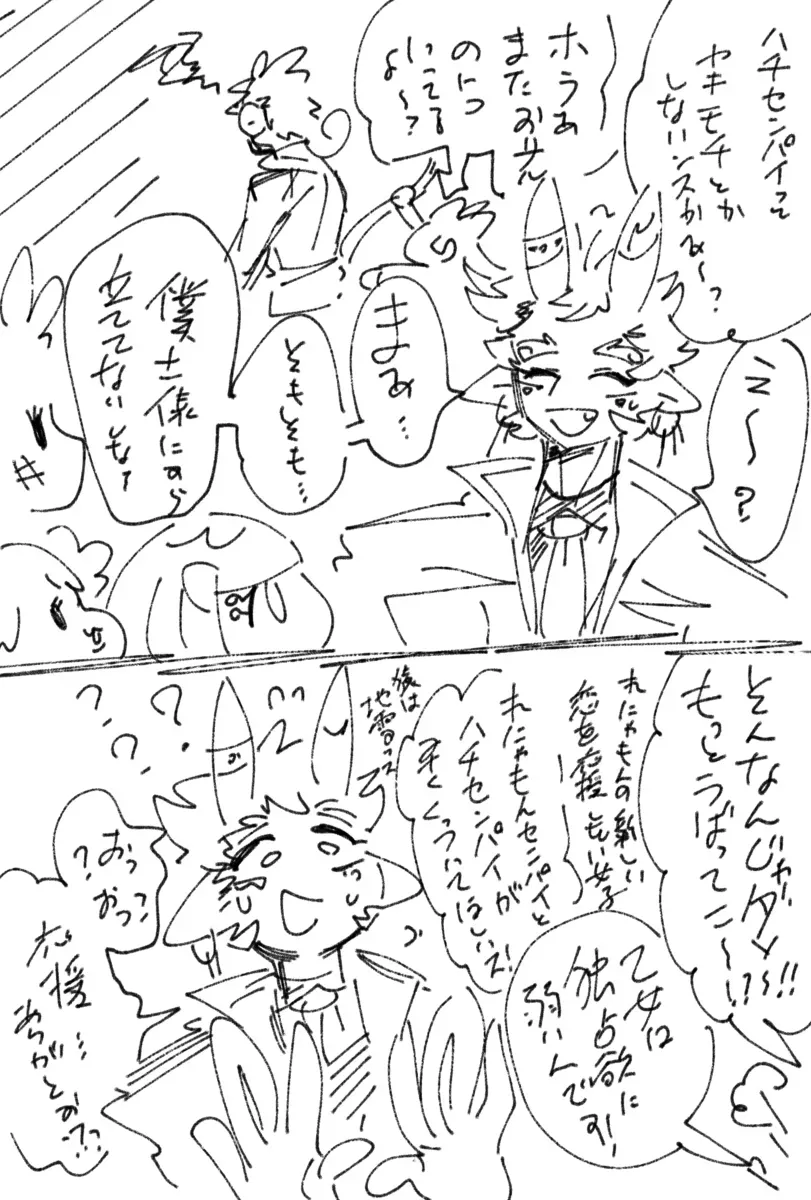 ハチセンパイって
ヤキモチとか
しないンスかぁ〜?
ホラぁ
また
のに
いってる
よ〜?
ニ〜?
まぁ…
そもそも…
僕
立ててないしな?
そんなんじゃダメ〜!!
もっとうばってこ〜!?!
れにゃもんの新しい
恋を応援したい女子
れにゃもんセンパイと
ハチセンパイが
早くくっついてほしいス!
乙女は
独占欲に
弱いんです!
おっ?
おっ?
応援…
ありがとお??